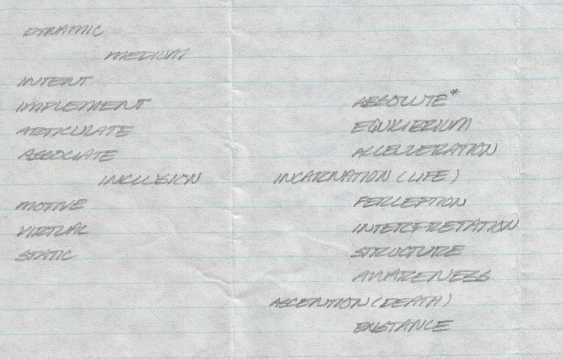 DYNAMIC
MEDIUM
INTENT
IMPLEMENT
ARTICULATE
ASSOCIATE
INCLUSION
MOTIVE
VIRTUAL
STATIC
ABSOLUTE*
EQUILIBRIUM
ACCELLERATION
INCARNATION (LIFE)
PERCEPTION
INTERPRETATION
STRUCTURE
AWARENESS
ASCENTION (DEATH)
EXISTANCE